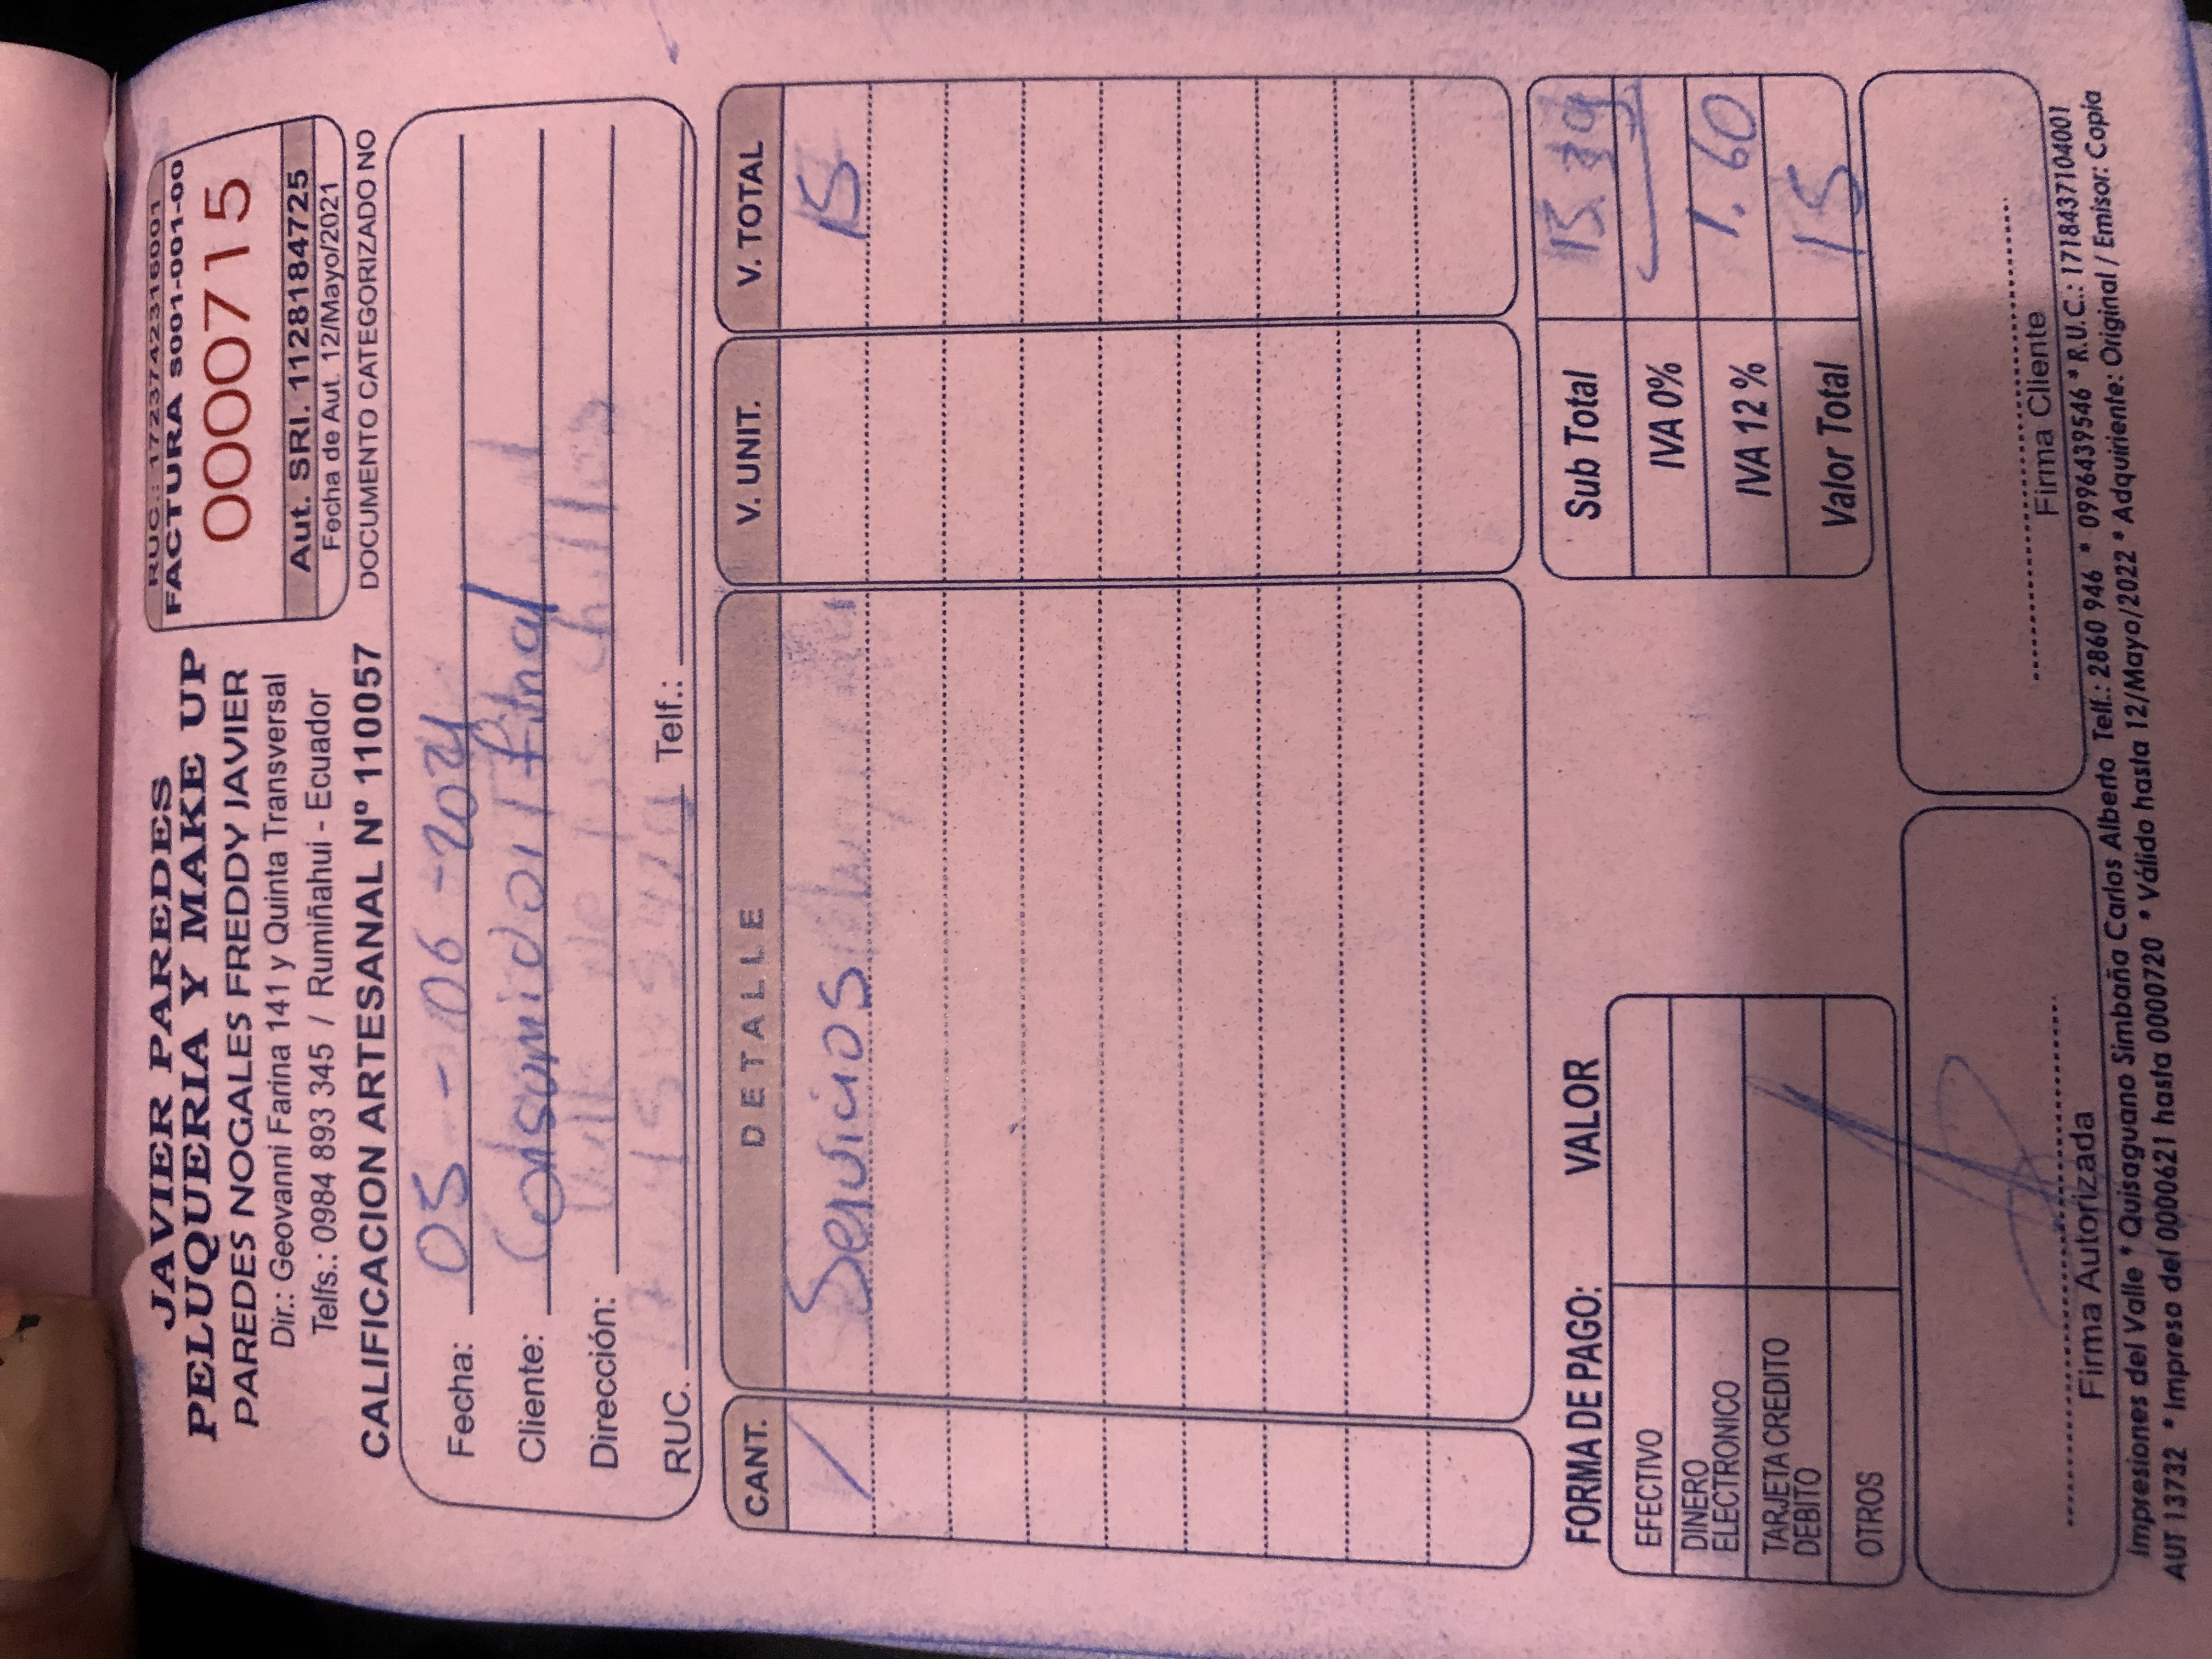 JAVIER PAREDES
PELUQUERIA Y MAKE UP
PAREDES NOGALES FREDDY JAVIER
Dir.: Geovanni Farina 141 y Quinta Transversal
Telfs.: 0984 893 345 / Rumiñahui - Ecuador
CALIFICACION ARTESANAL Nº 110057
RUC.: 1723742316001
FACTURA S001-001-00
0000715
Aut. SRI. 1128184725
Fecha de Aut. 12/Mayo/2021
DOCUMENTO CATEGORIZADO NO
Fecha: 05 - 06 - 2021
Cliente: Consumidor final
Dirección: Valle de los chillos
RUC.
Telf.:
CANT. DETALLE V. UNIT. V. TOTAL
1 Servicios 15
FORMA DE PAGO: VALOR
EFECTIVO
DINERO
ELECTRONICO
TARJETA CREDITO
DEBITO
OTROS
Sub Total
IVA 0%
IVA 12 % 1.60
Valor Total 15
Firma Autorizada
Firma Cliente
Impresiones del Valle * Quisaguano Simbaña Carlos Alberto Telf.: 2860 946 * 0996439546 * R.U.C.: 1718437104001
AUT 13732 * Impreso del 0000621 hasta 0000720 * Válido hasta 12/Mayo/2022 * Adquiriente: Original / Emisor: Copia